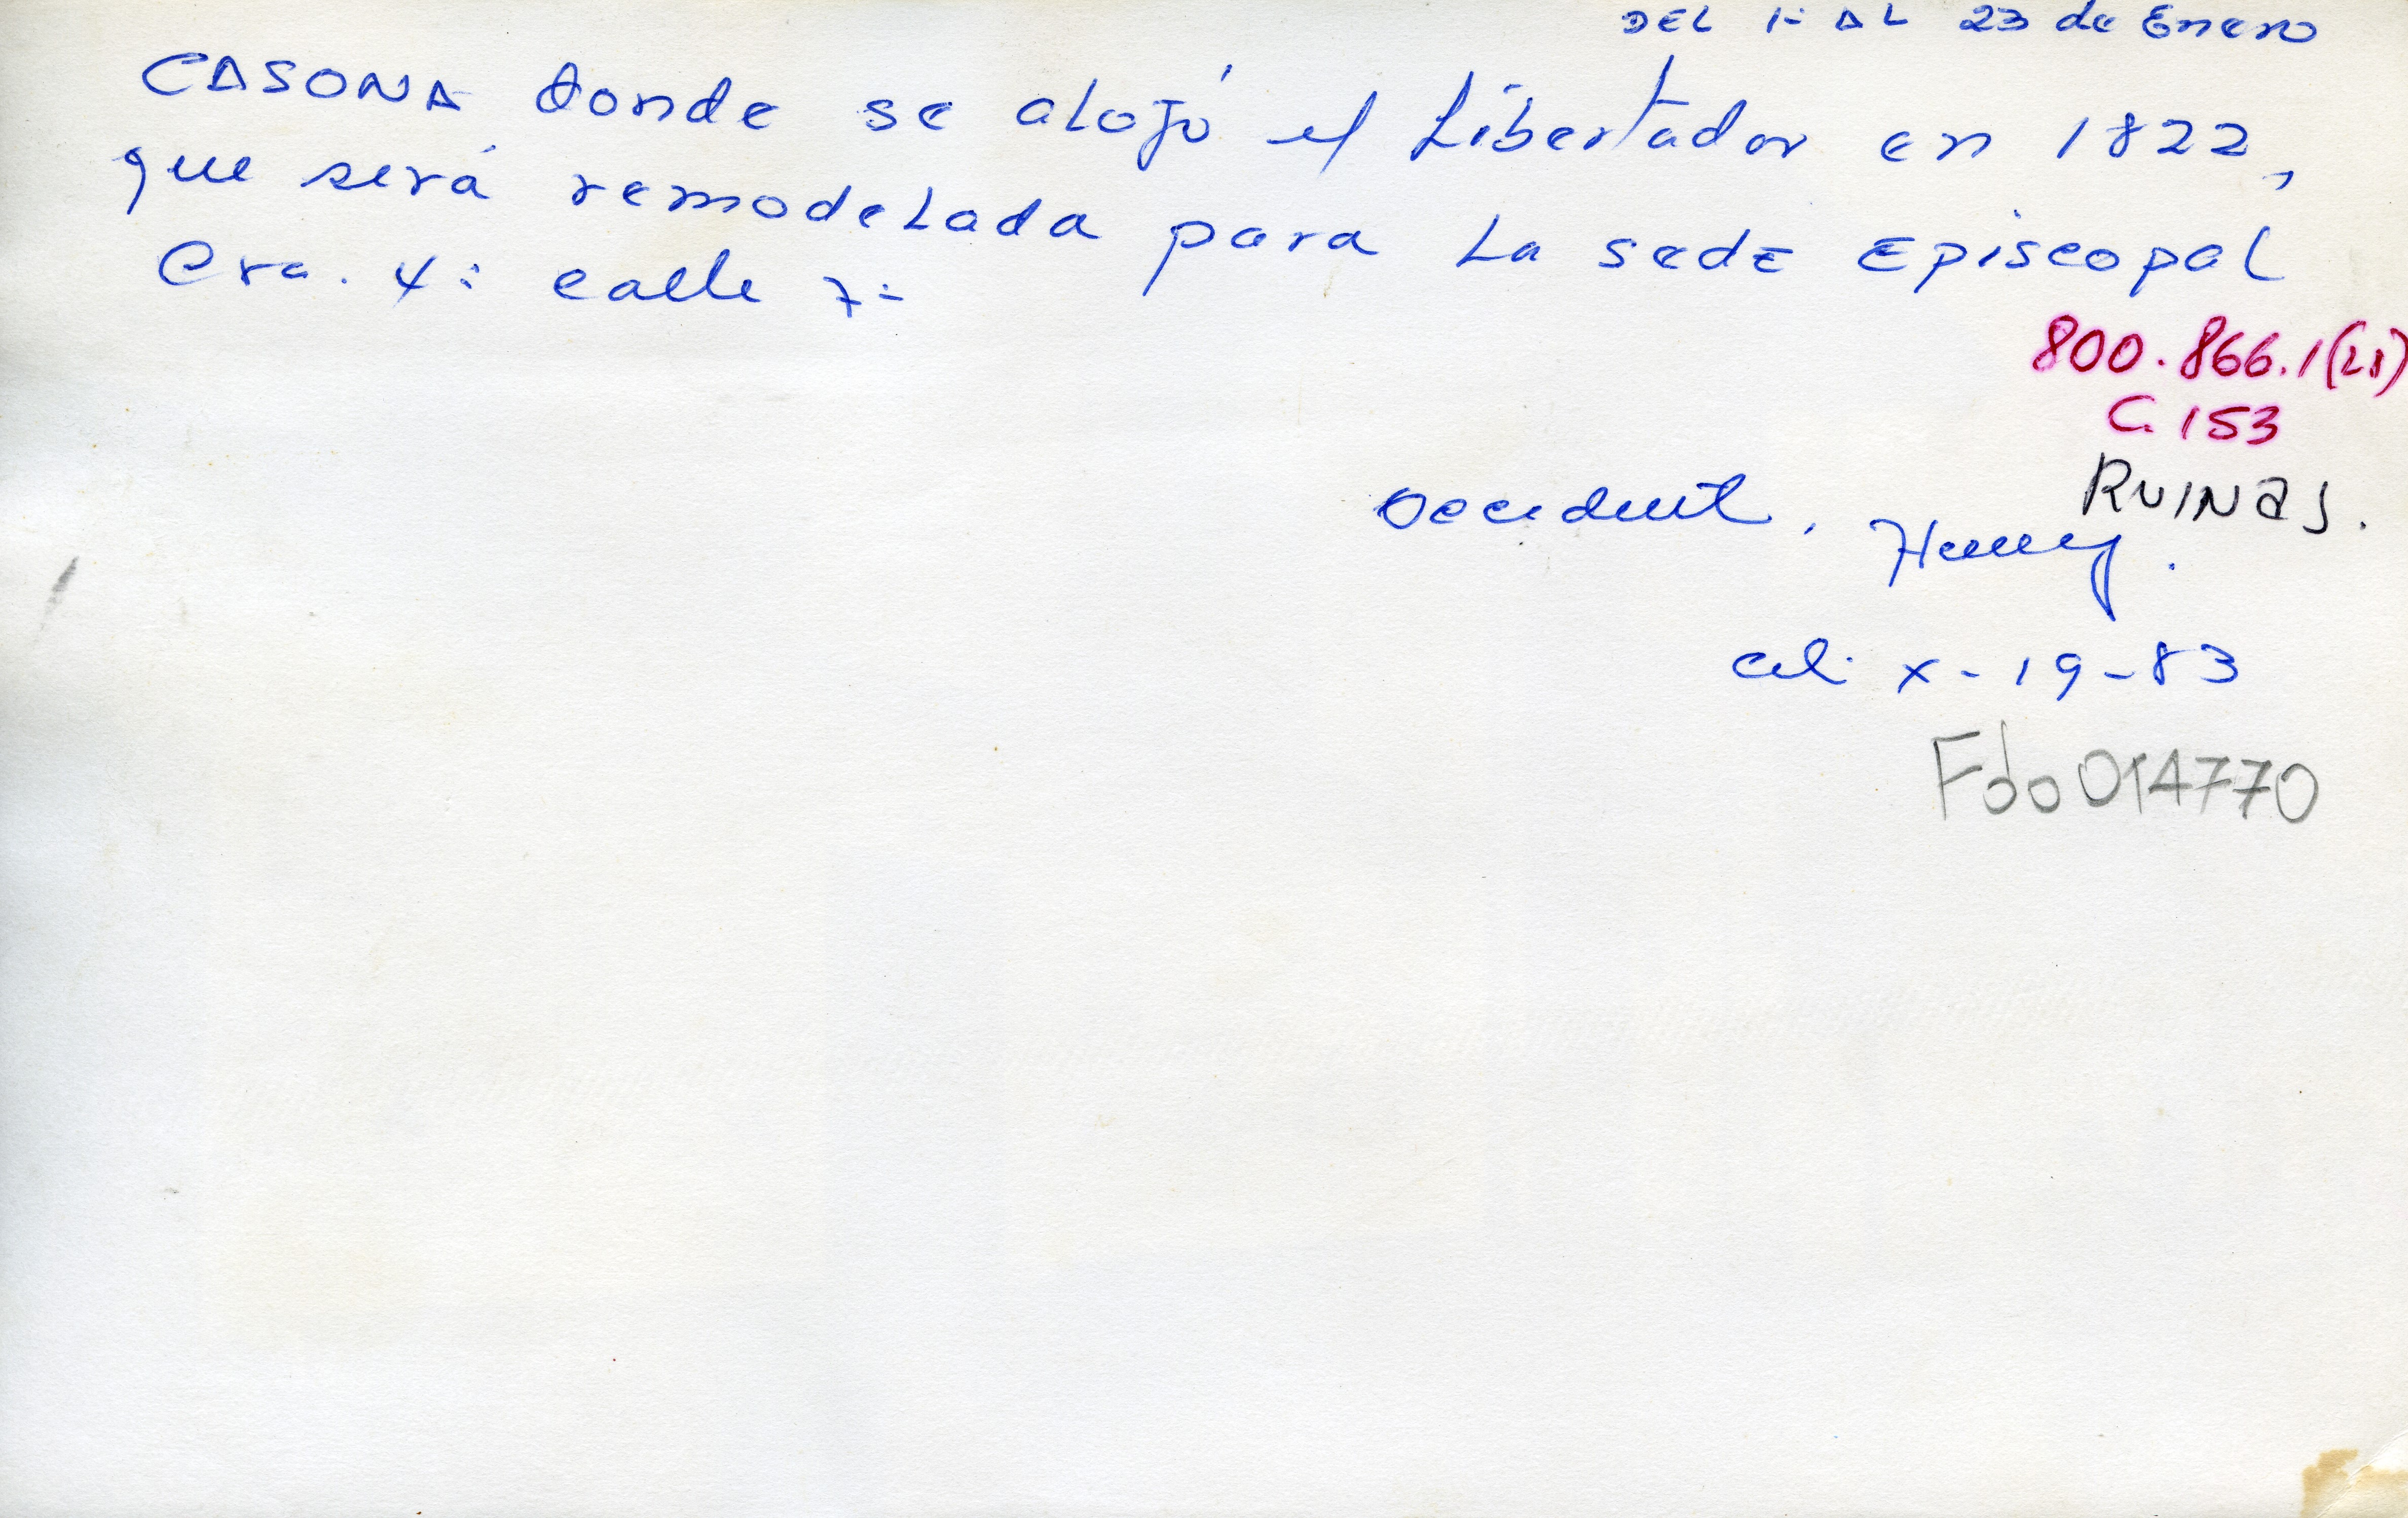 DEL 1º AL 23 de Enero
CASONA donde se alojó el Libertador en 1822,
que será remodelada para La sede Episcopal
Cra. 4ª calle 7ª
800.866.1(28)
C. 153
RUINAS.
Occident, Henry.
Cali X-19-83
Fdo 014770